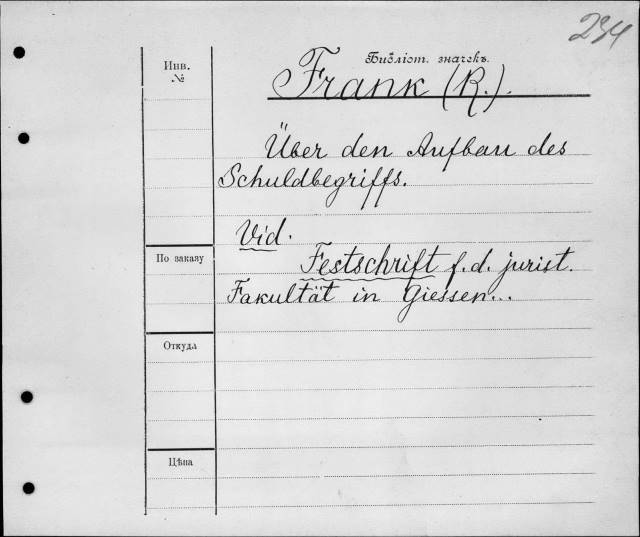 234
Библіот. значекъ.
Инв.
№
Frank (R.).
Über den Aufbau des
Schuldbegriffs.
Vid.
По заказу
Festschrift f. d. jurist.
Fakultät in Giessen...
Откуда
Цѣна